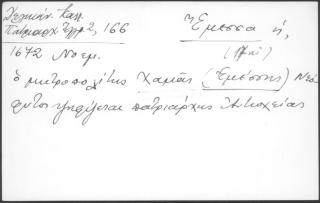 Δελικάν. Καλ.
Πατριαρχ Ἔγγρ 2, 166
Ἔμεσσα ἡ,
1672 Νοεμ.
ὁ μητροπολίτης Χαμᾶς (Ἐμέσσης) Νεό
φυτος ψηφίζεται πατριάρχης Ἀντιοχείας